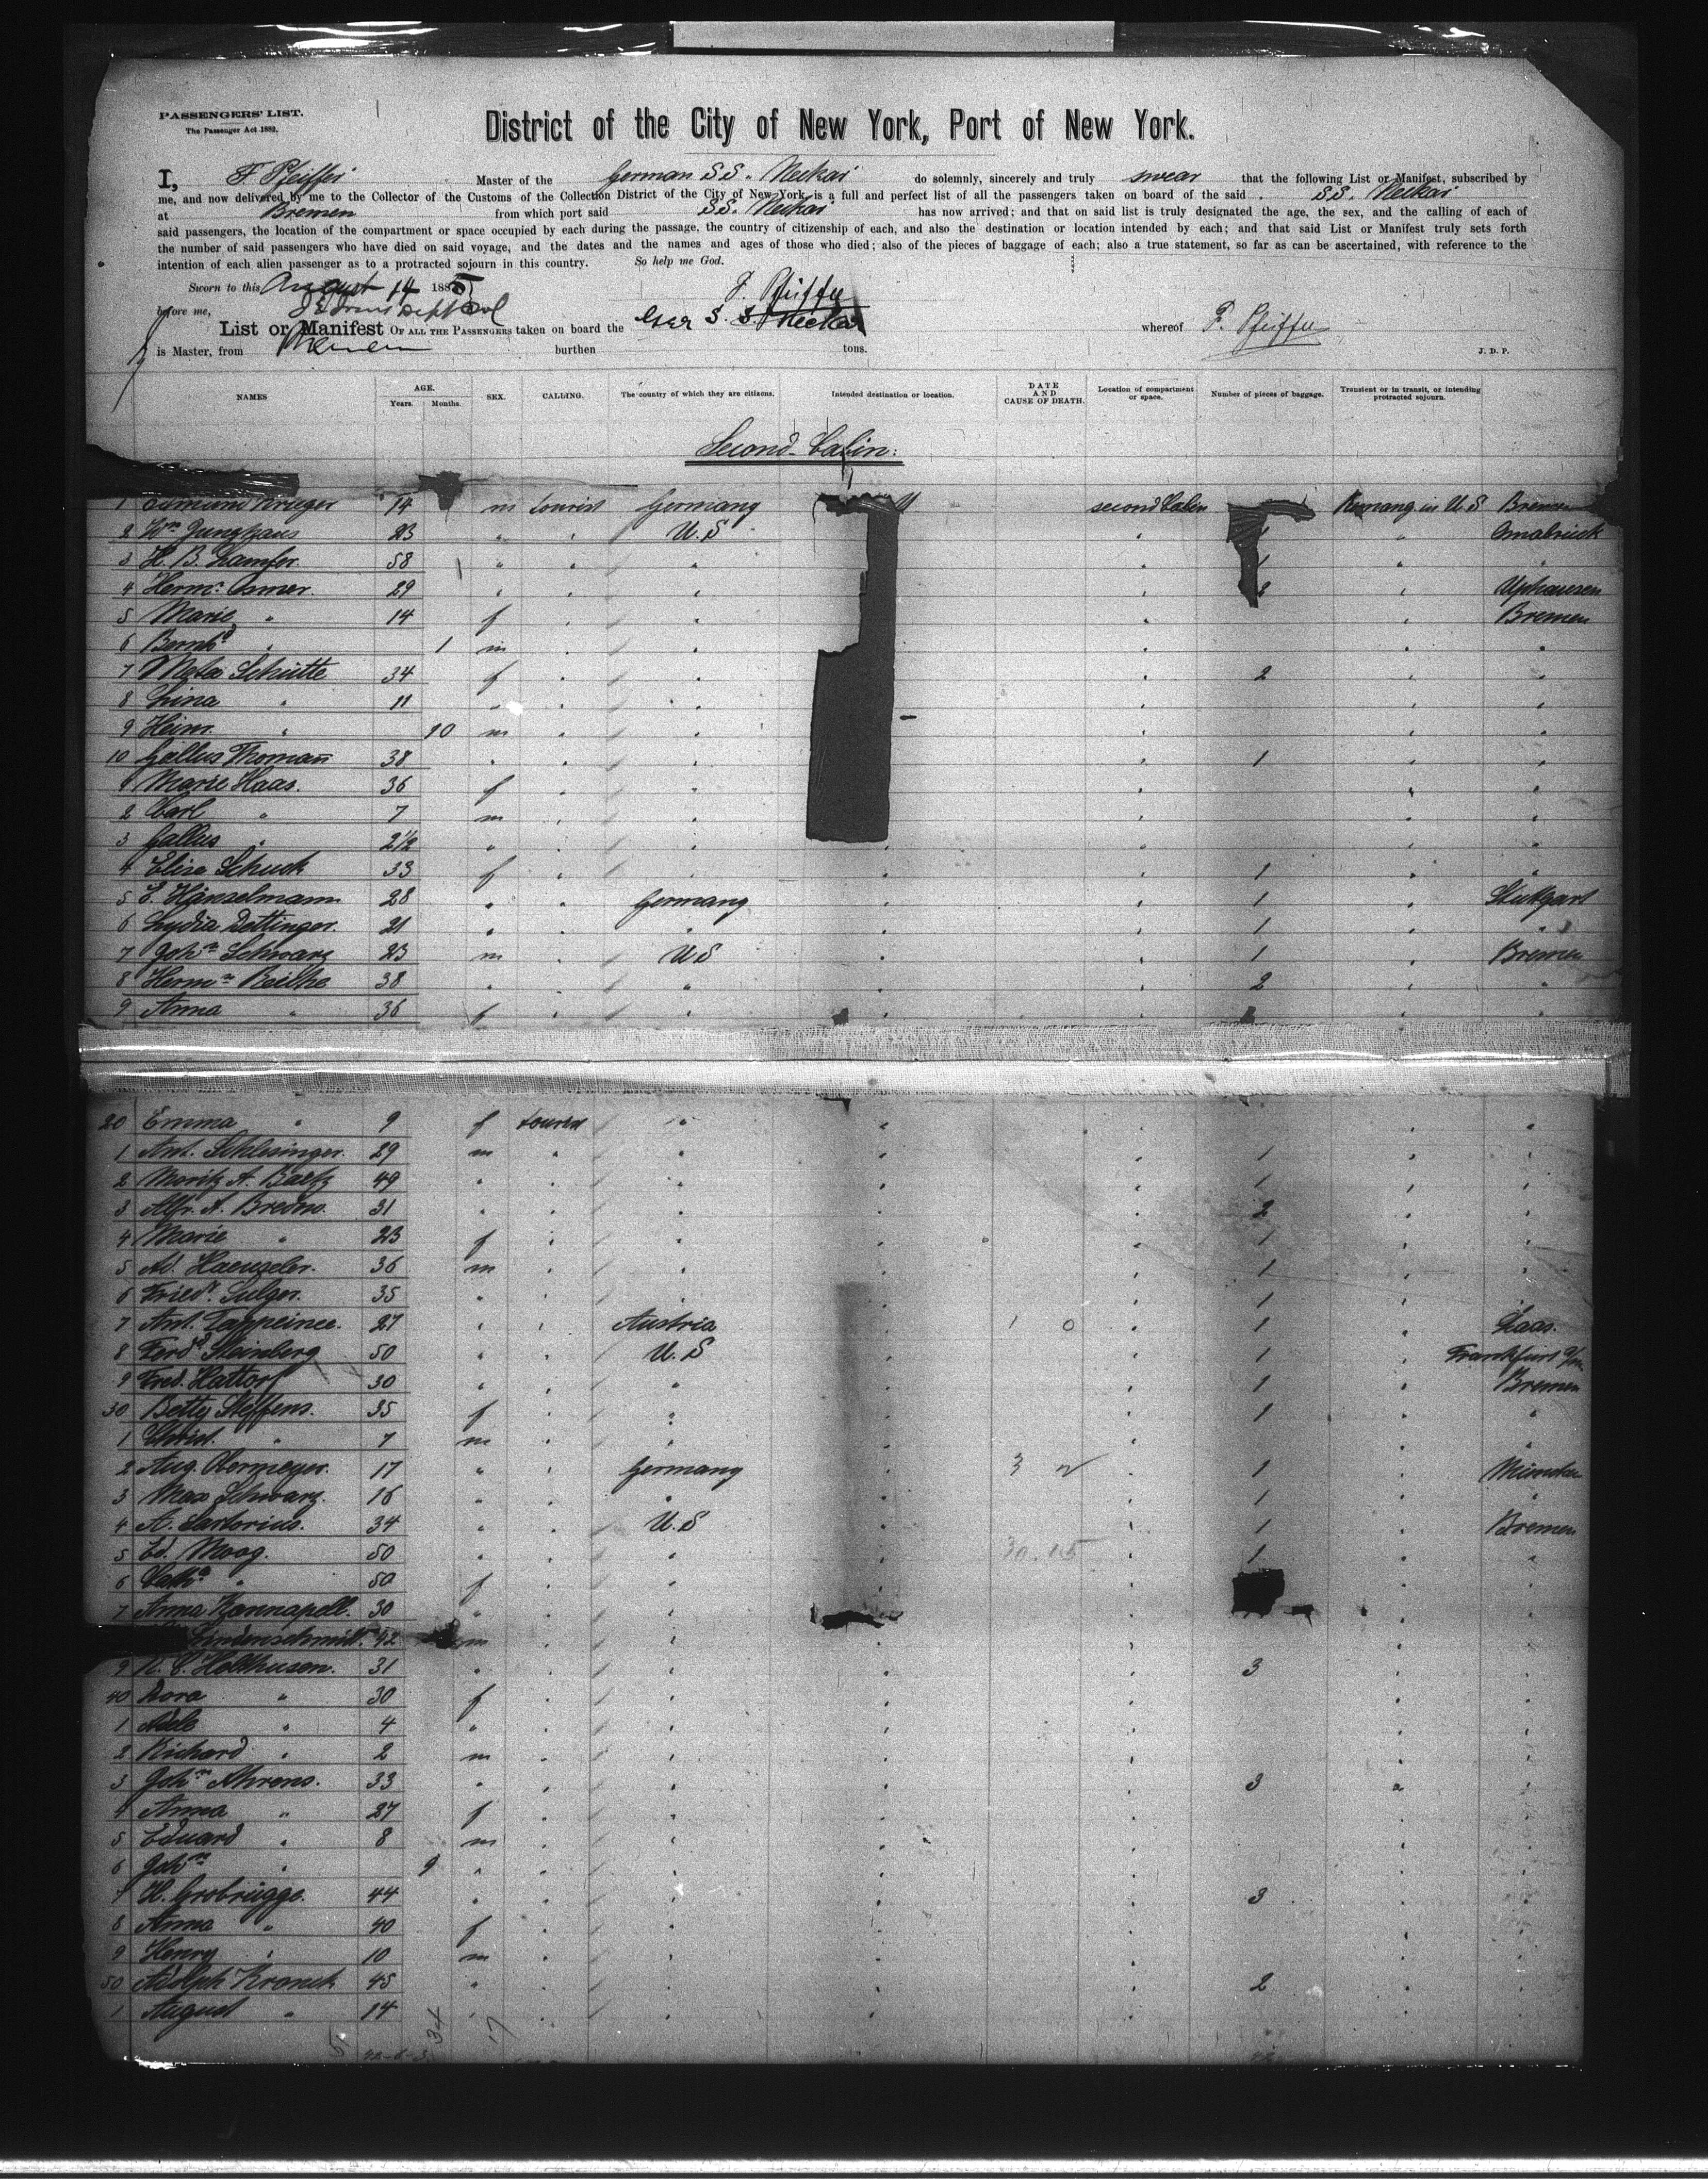 PASSENGERS' LIST.
The Passenger Act 1882.
District of the City of New York, Port of New York.
I, F. Pfeiffer Master of the German S.S. Neckar do solemnly, sincerely and truly swear that the following List or Manifest, subscribed by
me, and now delivered by me to the Collector of the Customs of the Collection District of the City of New York, is a full and perfect list of all the passengers taken on board of the said S.S. Neckar
at Bremen from which port said S.S. Neckar has now arrived; and that on said list is truly designated the age, the sex, and the calling of each of
said passengers, the location of the compartment or space occupied by each during the passage, the country of citizenship of each, and also the destination or location intended by each; and that said List or Manifest truly sets forth
the number of said passengers who have died on said voyage, and the dates and the names and ages of those who died; also of the pieces of baggage of each; also a true statement, so far as can be ascertained, with reference to the
intention of each alien passenger as to a protracted sojourn in this country. So help me God.
Sworn to this August 14 1885 F. Pfeiffer
before me,
List or Manifest OF ALL THE PASSENGERS taken on board the Ger S. S. Neckar whereof F. Pfeiffer
is Master, from Bremen burthen tons. J. D. P.
NAMES AGE. Years. Months. SEX. CALLING. The country of which they are citizens. Intended destination or location. DATE AND CAUSE OF DEATH. Location of compartment or space. Number of pieces of baggage. Transient or in transit, or intending protracted sojourn.
Second Cabin:
1 Edmund Krüger 14 m tourist Germany U second Cabin Remang in U S Bremen
2 Wm Junghaus 23 " " U.S " 1 " Osnabrück
3 H. B. Kamfer. 58 " " " " 1 " "
4 Hermn Osmer. 29 " " " " 2 " Uphausen
5 Marie " 14 f " " " " Bremen
6 Bernhd " 1 m " " " " "
7 Meta Schütte 34 f " " " 2 " "
8 Lina " 11 " " " " " "
9 Heinr. " 10 m " " " " "
10 Gallus Thomann 38 " " " " 1 " "
1 Marie Haas. 36 f " " " " "
2 Carl " 7 m " " " " "
3 Gallus " 2 1/2 " " " " " " "
4 Elise Schuck 33 f " " " " 1 " "
5 E. Hänselmann 28 " " Germany " " 1 " Stuttgart
6 Lydia Dettinger. 21 " " " " " 1 " "
7 John Schwarz 23 m " U S " " 1 " Bremen
8 Hermn Reithe 38 " " " " " 2 " "
9 Anna " 36 f " " " " " "
20 Emma " 9 f tourist " " " " "
1 Ant. Schlesinger. 29 m " " " " 1 " "
2 Moritz A. Baelz 49 " " " " " 1 " "
3 Alfr. A. Bredno. 31 " " " " " 2 " "
4 Marie " 23 f " " " " 1 " "
5 Ad. Haenzeler. 36 m " " " " 1 " "
6 Friedr. Sulger. 35 " " " " " 1 " "
7 Ant. Tappeiner. 27 " " Austria " 1 0 " 1 " Laas.
8 Ferdd Steinberg 50 " " U. S " " 1 " Frankfurt a/m
9 Fred. Hattorf 30 " " " " " 1 " Bremen
30 Betty Steffens. 35 f " " " " 1 " "
1 Christ. " 7 m " " " " " "
2 Aug. Obermeyer. 17 " " Germany " " 1 " München
3 Max Schwarz. 16 " " " " " 1 " "
4 A. Sartorius. 34 " " U. S " " 1 " Bremen
5 Ed. Moog. 50 " " " " " 1 " "
6 Catha " 50 f " " " " " "
7 Anna Kannapell. 30 " " " " " "
Lindenschmidt. 42 m " " " " " "
9 R. C. Holthusen. 31 " " " " " 3 " "
40 Dora " 30 f " " " " " "
1 Adele " 4 " " " " " " "
2 Richard " 2 m " " " " " "
3 John Ahrens. 33 " " " " " 3 " "
4 Anna " 27 f " " " " " "
5 Eduard " 8 m " " " " " "
6 John " 9 " " " " " " "
7 H. Grobrügge. 44 " " " " " 3 " "
8 Anna " 40 f " " " " " "
9 Henry " 10 m " " " " " "
50 Adolph Kronck 45 " " " " " 2 " "
1 August " 14 " " " " " " "
34 17